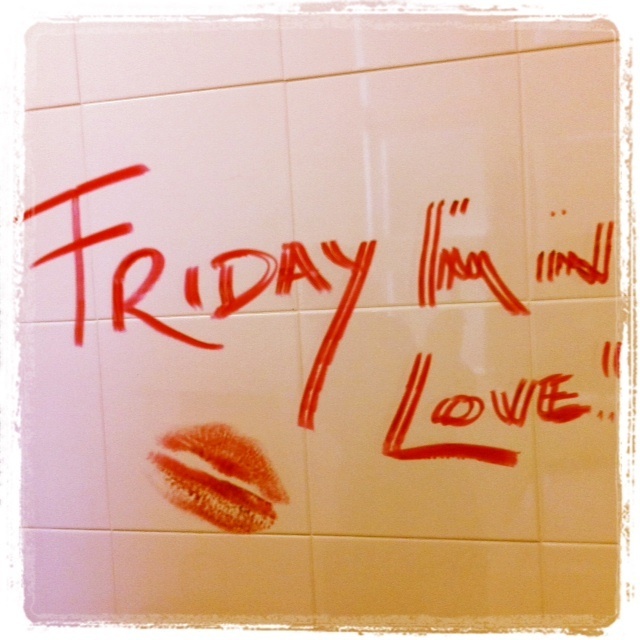 FRIDAY I'm in
LOVE"